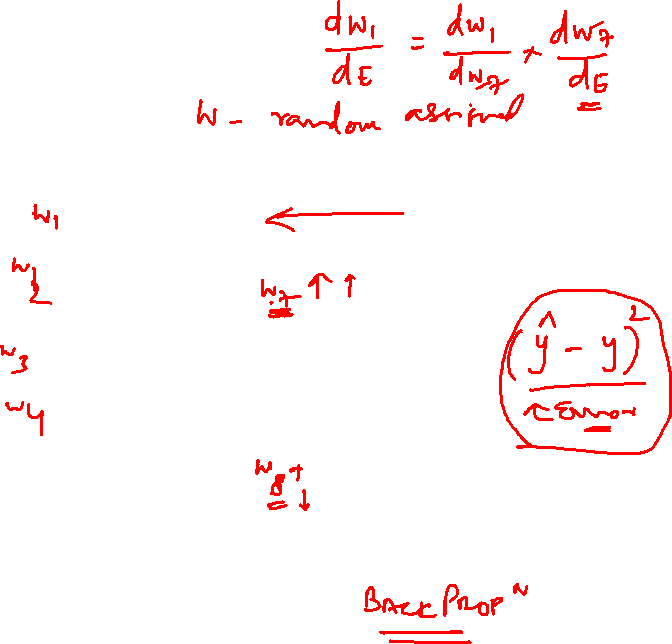 dw₁/dE = dw₁/dw₇ × dw₇/dE
W - random assigned
w₁
w₂
w₇ ↑ ↑
(ŷ - y)²
↑ Error
w₃
w₄
w₈ ↑ ↓
BACK PROPⁿ